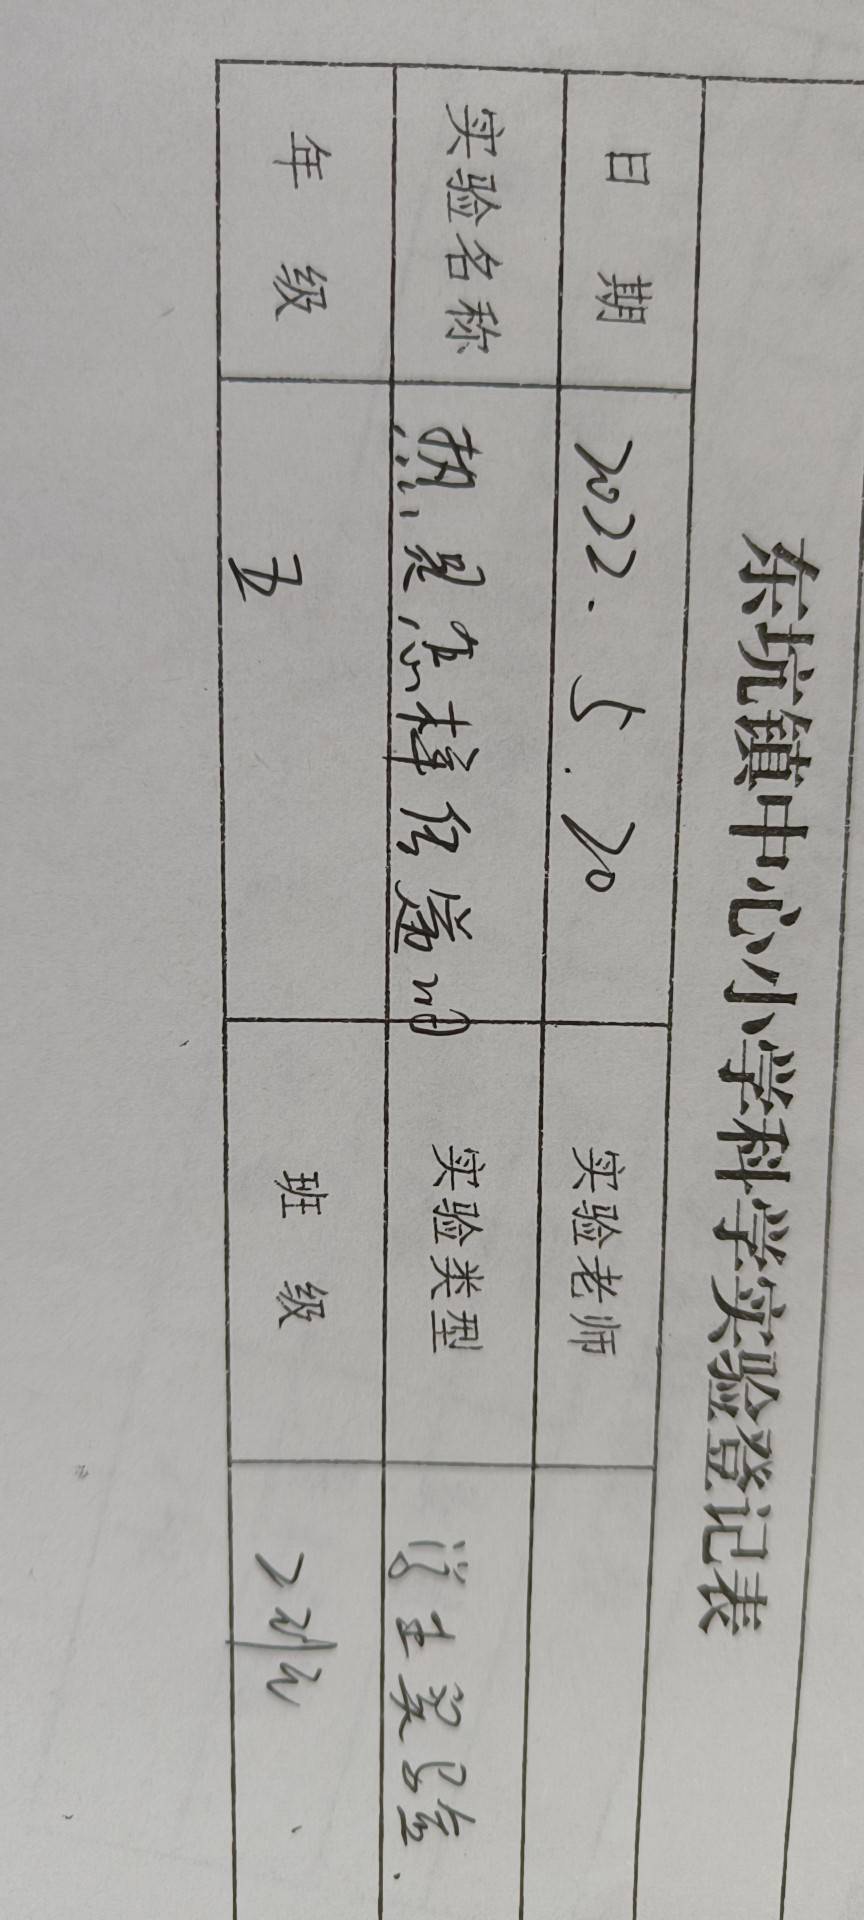 东坑镇中心小学科学实验登记表
日期 2022.5.20 实验老师
实验名称 热是怎样传递的 实验类型 学生实验.
年级 五 班级 2班